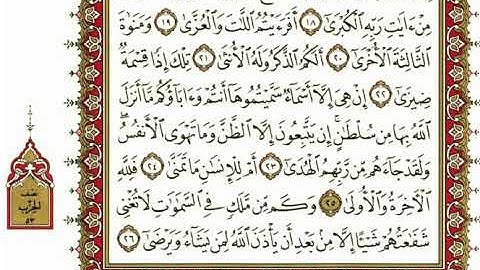 مِنْ ءَايَٰتِ رَبِّهِ ٱلْكُبْرَىٰٓ ١٨ أَفَرَءَيْتُمُ ٱللَّٰتَ وَٱلْعُزَّىٰ ١٩ وَمَنَوٰةَ
ٱلثَّالِثَةَ ٱلْأُخْرَىٰٓ ٢٠ أَلَكُمُ ٱلذَّكَرُ وَلَهُ ٱلْأُنثَىٰ ٢١ تِلْكَ إِذًا قِسْمَةٌ
ضِيزَىٰٓ ٢٢ إِنْ هِىَ إِلَّآ أَسْمَآءٌ سَمَّيْتُمُوهَآ أَنتُمْ وَءَابَآؤُكُم مَّآ أَنزَلَ
ٱللَّهُ بِهَا مِن سُلْطَٰنٍ ۚ إِن يَتَّبِعُونَ إِلَّا ٱلظَّنَّ وَمَا تَهْوَى ٱلْأَنفُسُ ۖ
وَلَقَدْ جَآءَهُم مِّن رَّبِّهِمُ ٱلْهُدَىٰٓ ٢٣ أَمْ لِلْإِنسَٰنِ مَا تَمَنَّىٰ ٢٤ فَلِلَّهِ
ٱلْءَاخِرَةُ وَٱلْأُولَىٰ ٢٥ وَكَم مِّن مَّلَكٍ فِى ٱلسَّمَٰوَٰتِ لَا تُغْنِى
شَفَٰعَتُهُمْ شَيْـًٔا إِلَّا مِنۢ بَعْدِ أَن يَأْذَنَ ٱللَّهُ لِمَن يَشَآءُ وَيَرْضَىٰٓ ٢٦
نصف
الحزب
٥٣